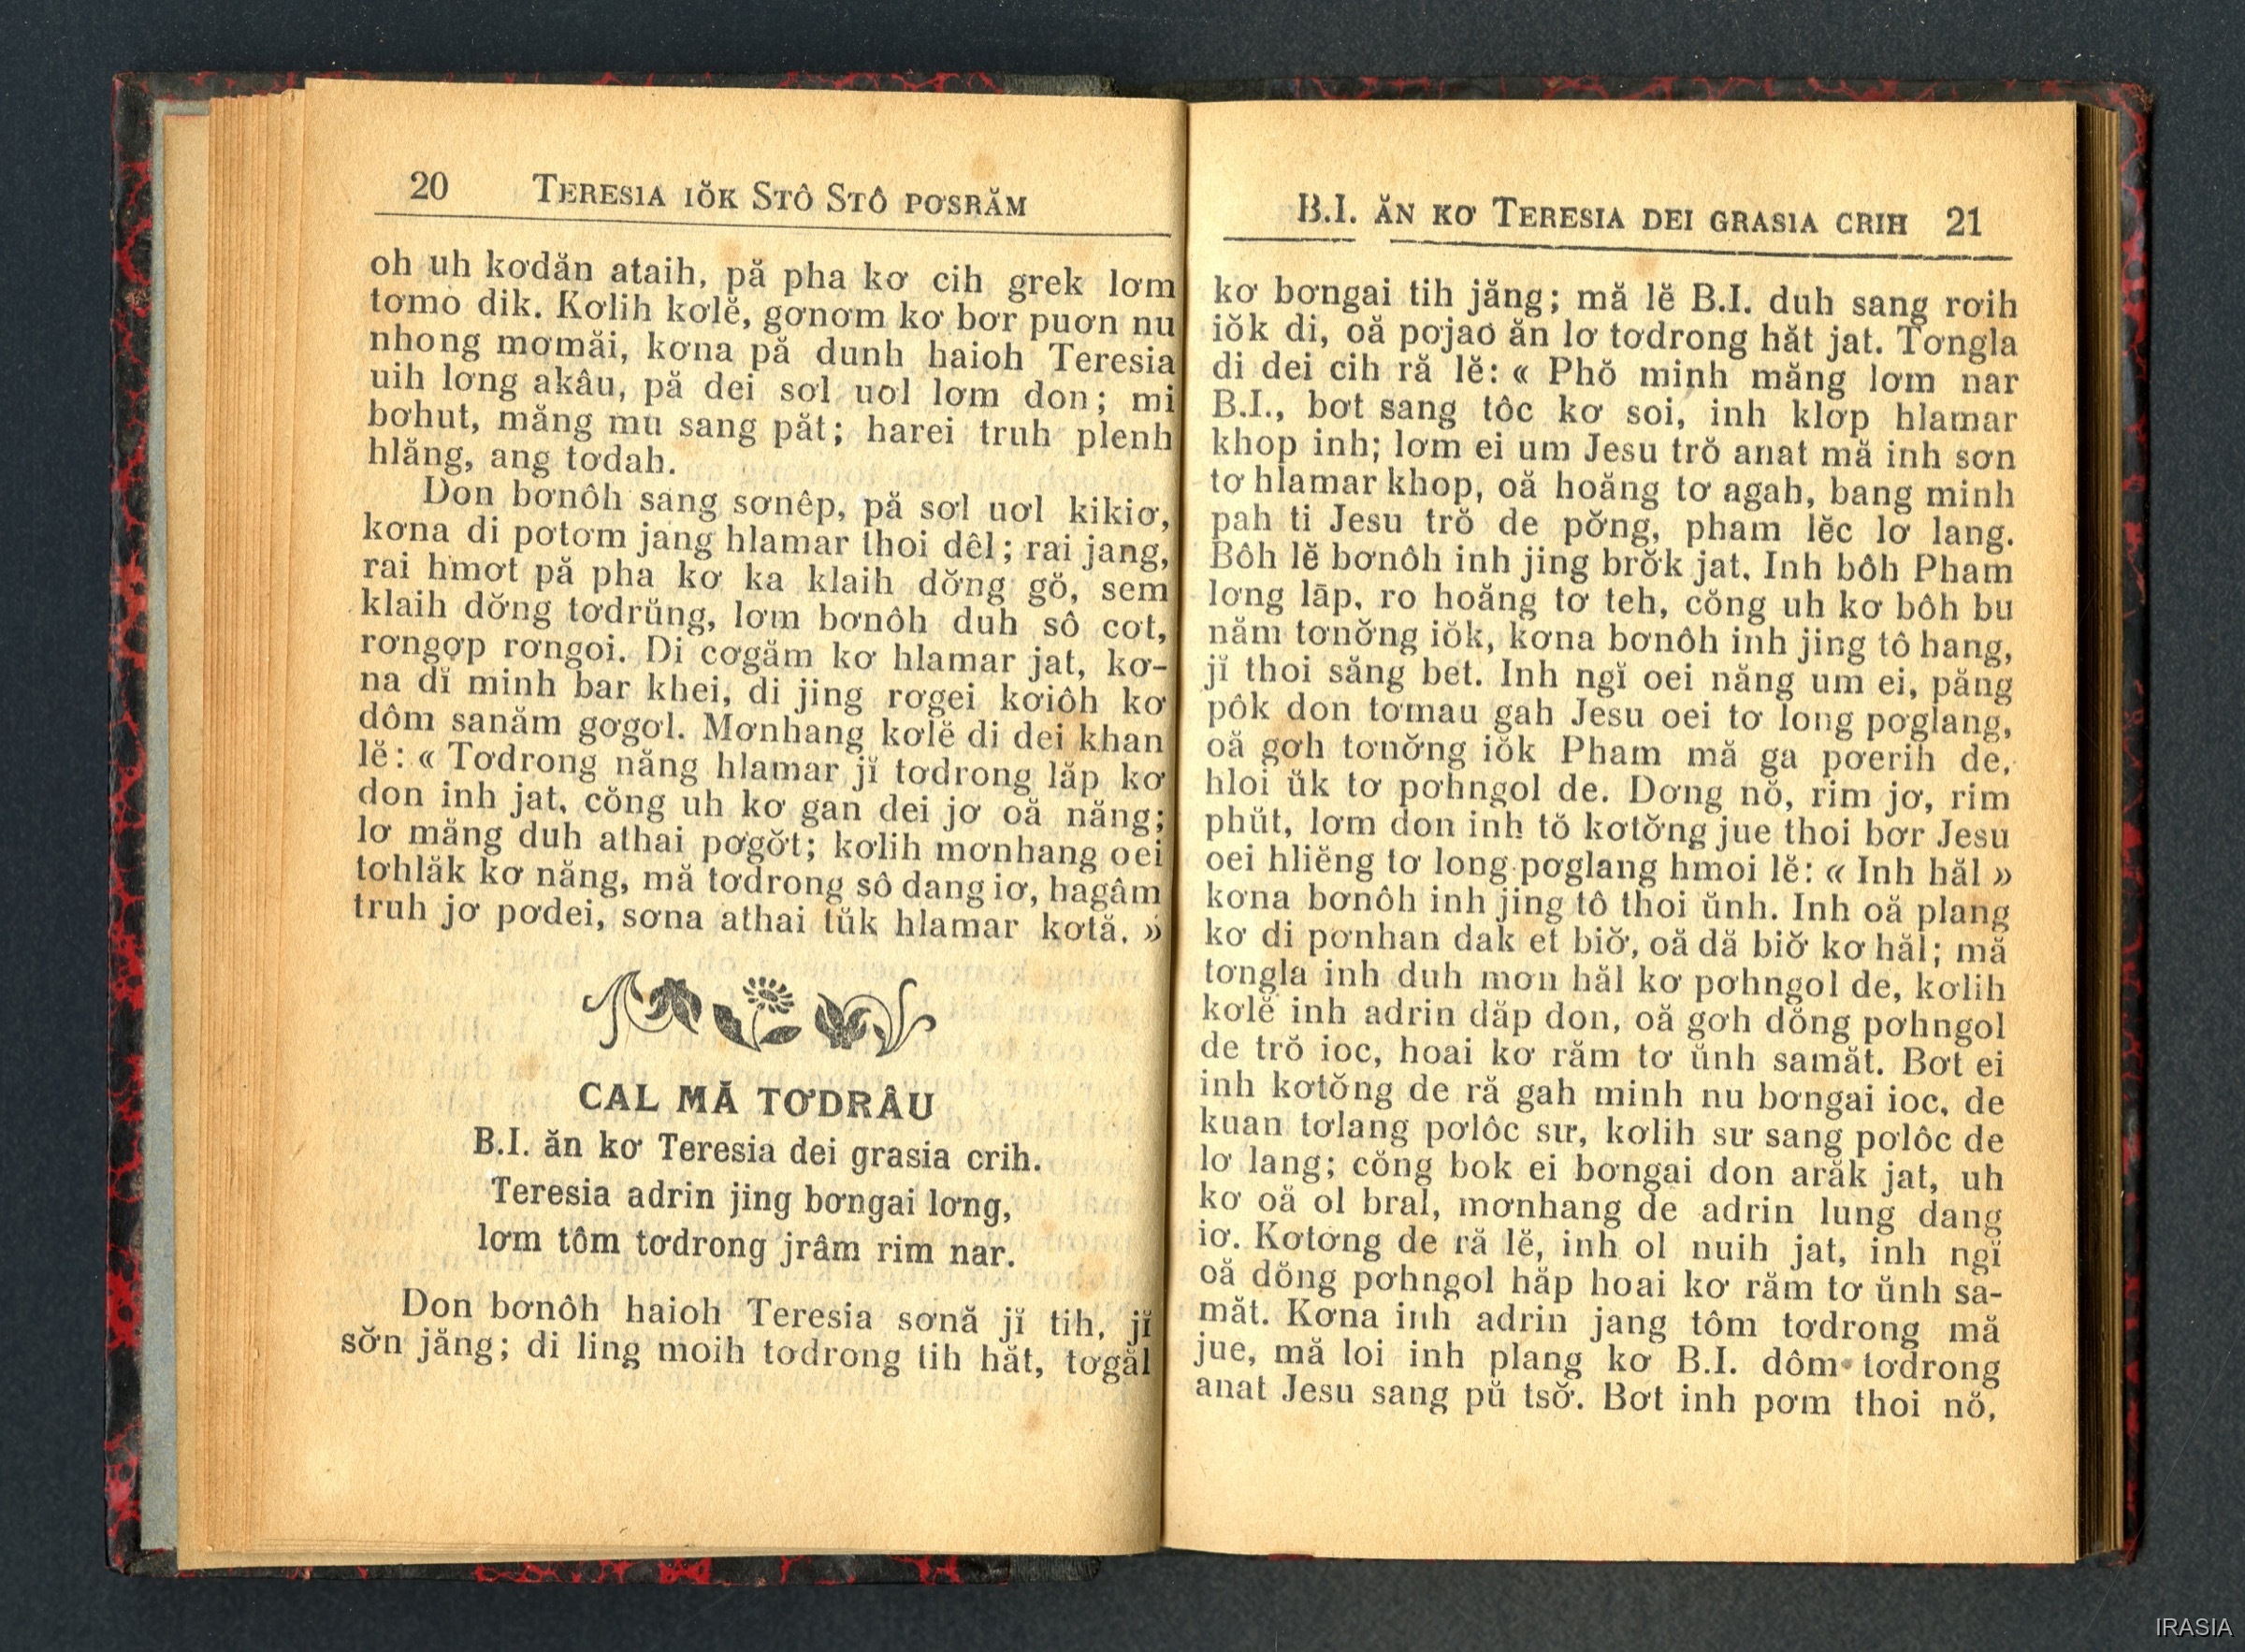 20 TERESIA IŎK STÔ STÔ PƠSRĂM
oh uh kơdăn ataih, pă pha kơ cih grek lơm
tơmo dik. Kơlih kơlĕ, gơnơm kơ bơr puơn nu
nhong mơmăi, kơna pă dunh haioh Teresia
uih lơng akâu, pă dei sơl uơl lơm don; mi
bơhut, măng mu sang păt; harei truh plenh
hlăng, ang tơdah.
Don bơnôh sang sơnêp, pă sơl uơl kikiơ,
kơna di pơtơm jang hlamar thoi dêl; rai jang,
rai hmơt pă pha kơ ka klaih dơ̆ng gŏ, sem
klaih dơ̆ng tơdrŭng, lơm bơnôh duh sô cơt,
rơngơp rơngoi. Di cơgăm kơ hlamar jat, kơ-
na dĭ minh bar khei, di jing rơgei kơiôh kơ
dôm sanăm gơgơl. Mơnhang kơlĕ di dei khan
lĕ: « Tơdrong năng hlamar jĭ tơdrong lăp kơ
don inh jat, cŏng uh kơ gan dei jơ oă năng;
lơ măng duh athai pơgơ̆t; kơlih mơnhang oei
tơhlăk kơ năng, mă tơdrong sô dang iơ, hagâm
truh jơ pơdei, sơna athai tŭk hlamar kơtă. »
CAL MĂ TƠDRÂU
B.I. ăn kơ Teresia dei grasia crih.
Teresia adrin jing bơngai lơng,
lơm tôm tơdrong jrâm rim nar.
Don bơnôh haioh Teresia sơnă jĭ tih, jĭ
sơ̆n jăng; di ling moih tơdrong tih hăt, tơgăl
B.I. ĂN KƠ TERESIA DEI GRASIA CRIH 21
kơ bơngai tih jăng; mă lĕ B.I. duh sang rơih
iŏk di, oă pơjao ăn lơ tơdrong hăt jat. Tơngla
di dei cih ră lĕ: « Phŏ minh măng lơm nar
B.I., bơt sang tôc kơ soi, inh klơp hlamar
khop inh; lơm ei um Jesu trŏ anat mă inh sơn
tơ hlamar khop, oă hoăng tơ agah, bang minh
pah ti Jesu trŏ de pơ̆ng, pham lĕc lơ lang.
Bôh lĕ bơnôh inh jing brơ̆k jat. Inh bôh Pham
lơng lăp, ro hoăng tơ teh, cŏng uh kơ bôh bu
năm tơnơ̆ng iŏk, kơna bơnôh inh jing tô hang,
jĭ thoi săng bet. Inh ngĭ oei năng um ei, păng
pôk don tơmau gah Jesu oei tơ long pơglang,
oă gơh tơnơ̆ng iŏk Pham mă ga pơerih de,
hloi ŭk tơ pơhngol de. Dơng nŏ, rim jơ, rim
phŭt, lơm don inh tŏ kơtơ̆ng jue thoi bơr Jesu
oei hliĕng tơ long pơglang hmoi lĕ: « Inh hăl »
kơna bơnôh inh jing tô thoi ŭnh. Inh oă plang
kơ di pơnhan dak et biơ̆, oă dă biơ̆ kơ hăl; mă
tơngla inh duh mơn hăl kơ pơhngol de, kơlih
kơlĕ inh adrin dăp don, oă gơh dŏng pơhngol
de trŏ ioc, hoai kơ răm tơ ŭnh samăt. Bơt ei
inh kơtŏng de ră gah minh nu bơngai ioc, de
kuan tơlang pơlôc sư, kơlih sư sang pơlôc de
lơ lang; cŏng bok ei bơngai don arăk jat, uh
kơ oă ol bral, mơnhang de adrin lung dang
iơ. Kơtơng de ră lĕ, inh ol nuih jat, inh ngĭ
oă dŏng pơhngol hăp hoai kơ răm tơ ŭnh sa-
măt. Kơna inh adrin jang tôm tơdrong mă
jue, mă loi inh plang kơ B.I. dôm tơdrong
anat Jesu sang pŭ tsơ̆. Bơt inh pơm thoi nŏ,
IRASIA